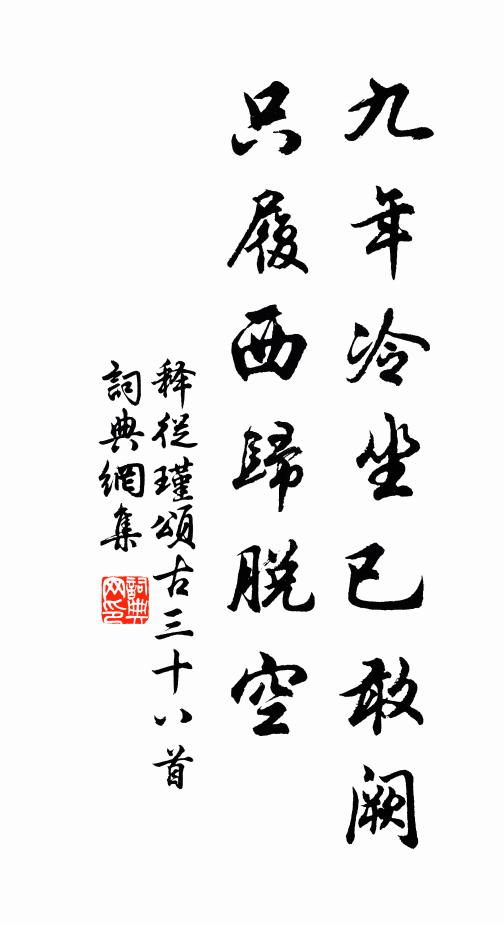 九年冷坐已敢阙
只履西歸脱空
释從瑾頌古三十八首
詞典網集
詞典网印